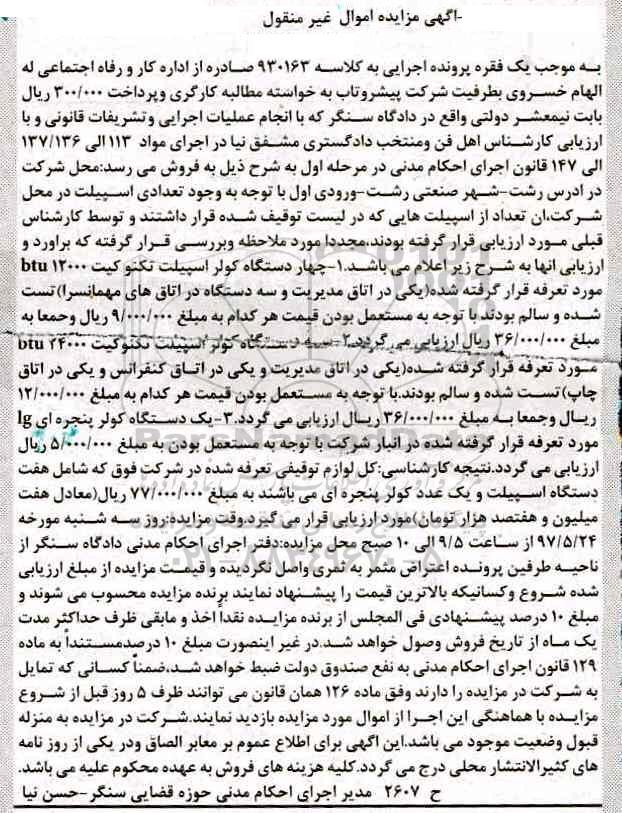 -آگهی مزایده اموال غیر منقول
به موجب یک فقره پرونده اجرایی به کلاسه ۹۳۰۱۶۳ صادره از اداره کار و رفاه اجتماعی له
الهام خسروی بطرفیت شرکت پیشروتاب به خواسته مطالبه کارگری وپرداخت ۳۰۰/۰۰۰ ریال
بابت نیمعشر دولتی واقع در دادگاه سنگر که با انجام عملیات اجرایی وتشریفات قانونی و با
ارزیابی کارشناس اهل فن ومنتخب دادگستری مشفق نیا در اجرای مواد ۱۱۳ الی ۱۳۷/۱۳۶
الی ۱۴۷ قانون اجرای احکام مدنی در مرحله اول به شرح ذیل به فروش می رسد:محل شرکت
در ادرس رشت-شهر صنعتی رشت-ورودی اول با توجه به وجود تعدادی اسپیلت در محل
شرکت،ان تعداد از اسپیلت هایی که در لیست توقیف شده قرار داشتند و توسط کارشناس
قبلی مورد ارزیابی قرار گرفته بودند،مجددا مورد ملاحظه وبررسی قرار گرفته که براورد و
ارزیابی انها به شرح زیر اعلام می باشد.۱-چهار دستگاه کولر اسپیلت تکنو کیت ۱۲۰۰۰ btu
مورد تعرفه قرار گرفته شده(یکی در اتاق مدیریت و سه دستگاه در اتاق های مهمانسرا)تست
شده و سالم بودند با توجه به مستعمل بودن قیمت هر کدام به مبلغ ۹/۰۰۰/۰۰۰ ریال وجمعا به
مبلغ ۳۶/۰۰۰/۰۰۰ ریال ارزیابی می گردد.۲-سه دستگاه کولر اسپیلت تکنوکیت ۲۴۰۰۰ btu
مورد تعرفه قرار گرفته شده(یکی در اتاق مدیریت و یکی در اتاق کنفرانس و یکی در اتاق
چاپ)تست شده و سالم بودند.با توجه به مستعمل بودن قیمت هر کدام به مبلغ ۱۲/۰۰۰/۰۰۰
ریال وجمعا به مبلغ ۳۶/۰۰۰/۰۰۰ ریال ارزیابی می گردد.۳-یک دستگاه کولر پنجره ای lg
مورد تعرفه قرار گرفته شده در انبار شرکت با توجه به مستعمل بودن به مبلغ ۵/۰۰۰/۰۰۰ ریال
ارزیابی می گردد.نتیجه کارشناسی:کل لوازم توقیفی تعرفه شده در شرکت فوق که شامل هفت
دستگاه اسپیلت و یک عدد کولر پنجره ای می باشند به مبلغ ۷۷/۰۰۰/۰۰۰ ریال(معادل هفت
میلیون و هفتصد هزار تومان)مورد ارزیابی قرار می گیرد.وقت مزایده:روز سه شنبه مورخه
۹۷/۵/۲۴ از ساعت ۹/۵ الی ۱۰ صبح محل مزایده:دفتر اجرای احکام مدنی دادگاه سنگر از
ناحیه طرفین پرونده اعتراض مثمر به ثمری واصل نگردیده و قیمت مزایده از مبلغ ارزیابی
شده شروع وکسانیکه بالاترین قیمت را پیشنهاد نمایند برنده مزایده محسوب می شوند و
مبلغ ۱۰ درصد پیشنهادی فی المجلس از برنده مزایده نقداً اخذ و مابقی ظرف حداکثر مدت
یک ماه از تاریخ فروش وصول خواهد شد.در غیر اینصورت مبلغ ۱۰ درصدمستنداً به ماده
۱۲۹ قانون اجرای احکام مدنی به نفع صندوق دولت ضبط خواهد شد،ضمناً کسانی که تمایل
به شرکت در مزایده را دارند وفق ماده ۱۲۶ همان قانون می توانند ظرف ۵ روز قبل از شروع
مزایده با هماهنگی این اجرا از اموال مورد مزایده بازدید نمایند.شرکت در مزایده به منزله
قبول وضعیت موجود می باشد.این اگهی برای اطلاع عموم بر معابر الصاق ودر یکی از روز نامه
های کثیرالانتشار محلی درج می گردد.کلیه هزینه های فروش به عهده محکوم علیه می باشد.
ح ۲۶۰۷ مدیر اجرای احکام مدنی حوزه قضایی سنگر-حسن نیا